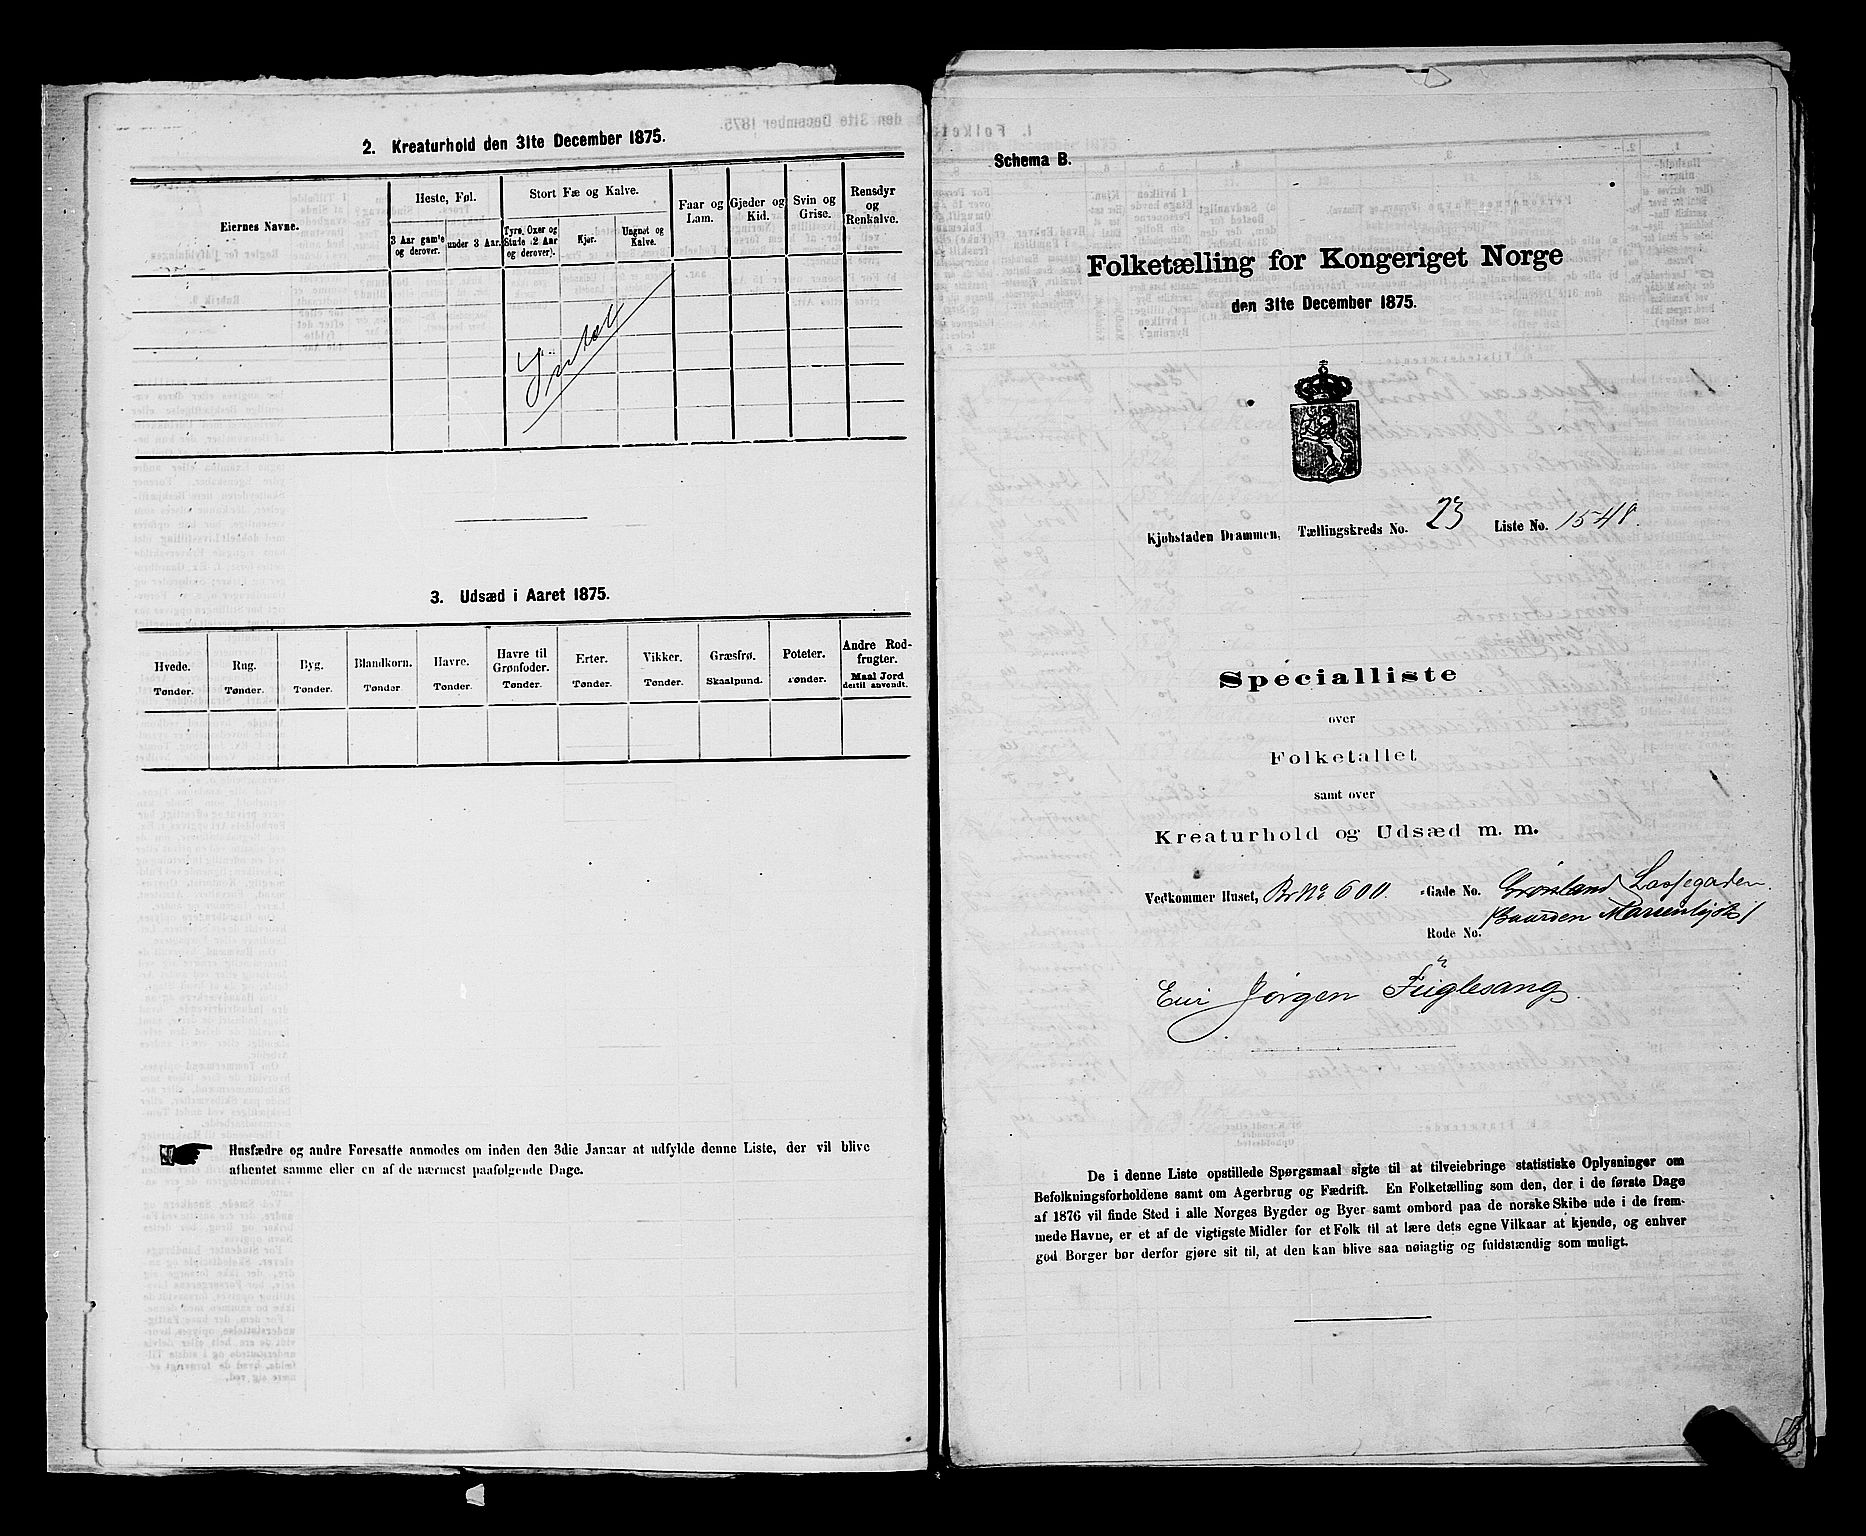 2. Kreaturhold den 31te December 1875.
Eiernes Navne.
Heste, Føl.
3 Aar gamle og derover.
under 3 Aar.
Stort Fæ og Kalve.
Tyre, Oxer og Stude (2 Aar og derover).
Kjør.
Ungnøt og Kalve.
Faar og Lam.
Gjeder og Kid.
Svin og Grise.
Rensdyr og Renkalve.
3. Udsæd i Aaret 1875.
Hvede. Tønder.
Rug. Tønder.
Byg. Tønder.
Blandkorn. Tønder
Havre. Tønder.
Havre til Grønfoder. Tønder.
Erter. Tønder.
Vikker. Tønder.
Græsfrø. Skaalpund.
Poteter. Tønder.
Andre Rodfrugter. Maal Jord dertil anvendt.
Husfædre og andre Foresatte anmodes om inden den 3die Januar at udfylde denne Liste, der vil blive
afhentet samme eller en af de nærmest paafølgende Dage.
Schema B.
Folketælling for Kongeriget Norge
den 31te December 1875.
Kjøbstaden Drammen, Tællingskreds No. 23 Liste No. 1548.
Specialliste
over
Folketallet
samt over
Kreaturhold og Udsæd m. m.
Vedkommer Huset, BrNo 600. Gade No. Grønland
Rode No. Gaarden
Eier Jørgen Füglesang.
De i denne Liste opstillede Spørgsmaal sigte til at tilveiebringe statistiske Oplysninger om
Befolkningsforholdene samt om Agerbrug og Fædrift. En Folketælling som den, der i de første Dage
af 1876 vil finde Sted i alle Norges Bygder og Byer samt ombord paa de norske Skibe ude i de frem-
mede Havne, er et af de vigtigste Midler for et Folk til at lære dets egne Vilkaar at kjende, og enhver
god Borger bør derfor gjøre sit til, at den kan blive saa nøiagtig og fuldstændig som muligt.